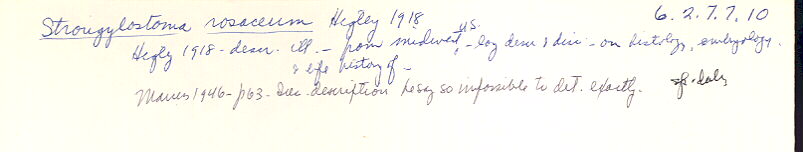 Strongylostoma rosaceum Higley 1918 6.2.7.7.10
Higly 1918 - descr. ill. - from midwest U.S. - log descr & disc. - on histology, embryology.
& life history of -
Marcus 1946 - p63 - Disc. description he say so impossible to det. exactly.